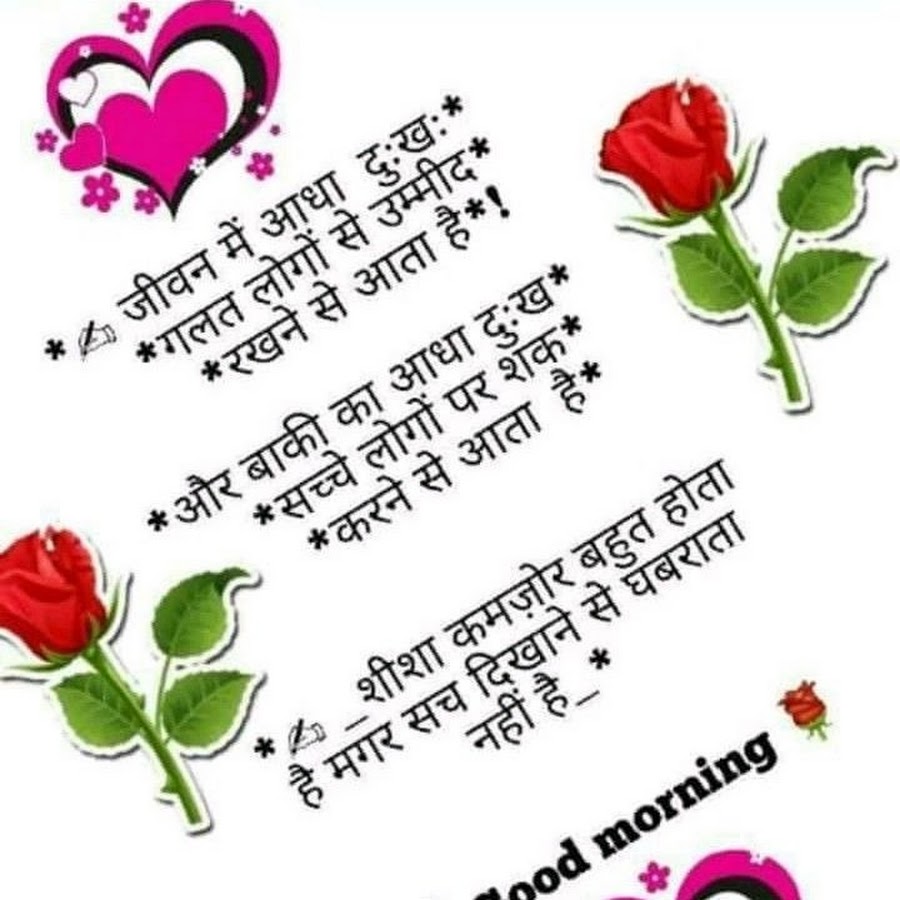 *✍ जीवन में आधा दु:ख:*
*गलत लोगों से उम्मीद*
*रखने से आता है*!
*और बाकी का आधा दु:ख*
*सच्चे लोगों पर शक*
*करने से आता है*
*✍ _शीशा कमज़ोर बहुत होता
है मगर सच दिखाने से घबराता
नहीं है_*
Good morning